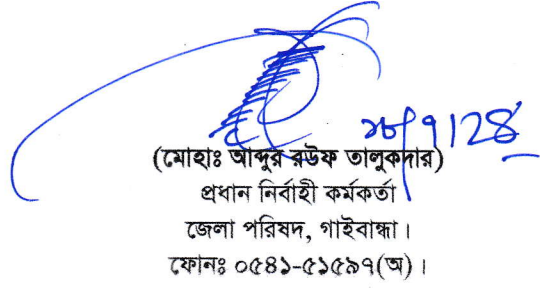 (মোহাঃ আব্দুর রউফ তালুকদার)
প্রধান নির্বাহী কর্মকর্তা
জেলা পরিষদ, গাইবান্ধা।
ফোনঃ ০৫৪১-৫১৫৯৭(অ)।